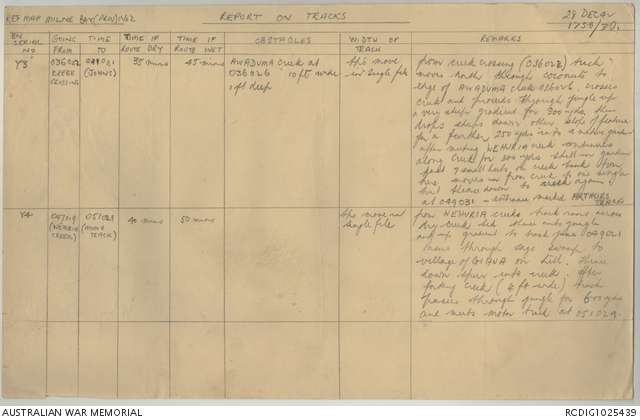 REF MAP MILNE BAY (PROV) 1942
REPORT ON TRACKS
28 Dec 42
1750/30.
BN SERIAL NO
GOING FROM
TIME TO
TIME IF ROUTE DRY
TIME IF ROUTE WET
OBSTACLES
WIDTH OF TRACK
REMARKS
Y3
036026 CREEK CROSSING
049031 (JOHNS)
35 mins
45 mins
AWADUMA Creek at
036026 10 ft wide
1 ft deep
tps move
in single file
from creek crossing (036026) track
moves north through coconuts to
edge of AWADUMA Creek, crosses
creek and proceeds through jungle up
a very steep gradient for 300 yds, then
drops steeply down other side of feature
for a further 250 yds into a native garden
after meeting WEHURIA Creek continues
along creek for 200 yds still in garden
past 7 small huts on creek bank from
here moves in from creek up one single
hut thence down to creek again
at 049031 - entrance marked ARTHURS
TRACK
Y4
(WEHURIA CREEK)
051029 (MOTOR TRACK)
40 mins
50 mins
tps move in
single file
from WEHURIA creek track runs across
dry creek bed thence into jungle
and up ground to track junc 049021
turns through sago swamp to
village of GIBUA on hill. Thence
down spur into creek. After
fording creek (4 ft wide) track
passes through jungle for 600 yds
and meets motor track at 051029.
AUSTRALIAN WAR MEMORIAL
RCDIG1025439